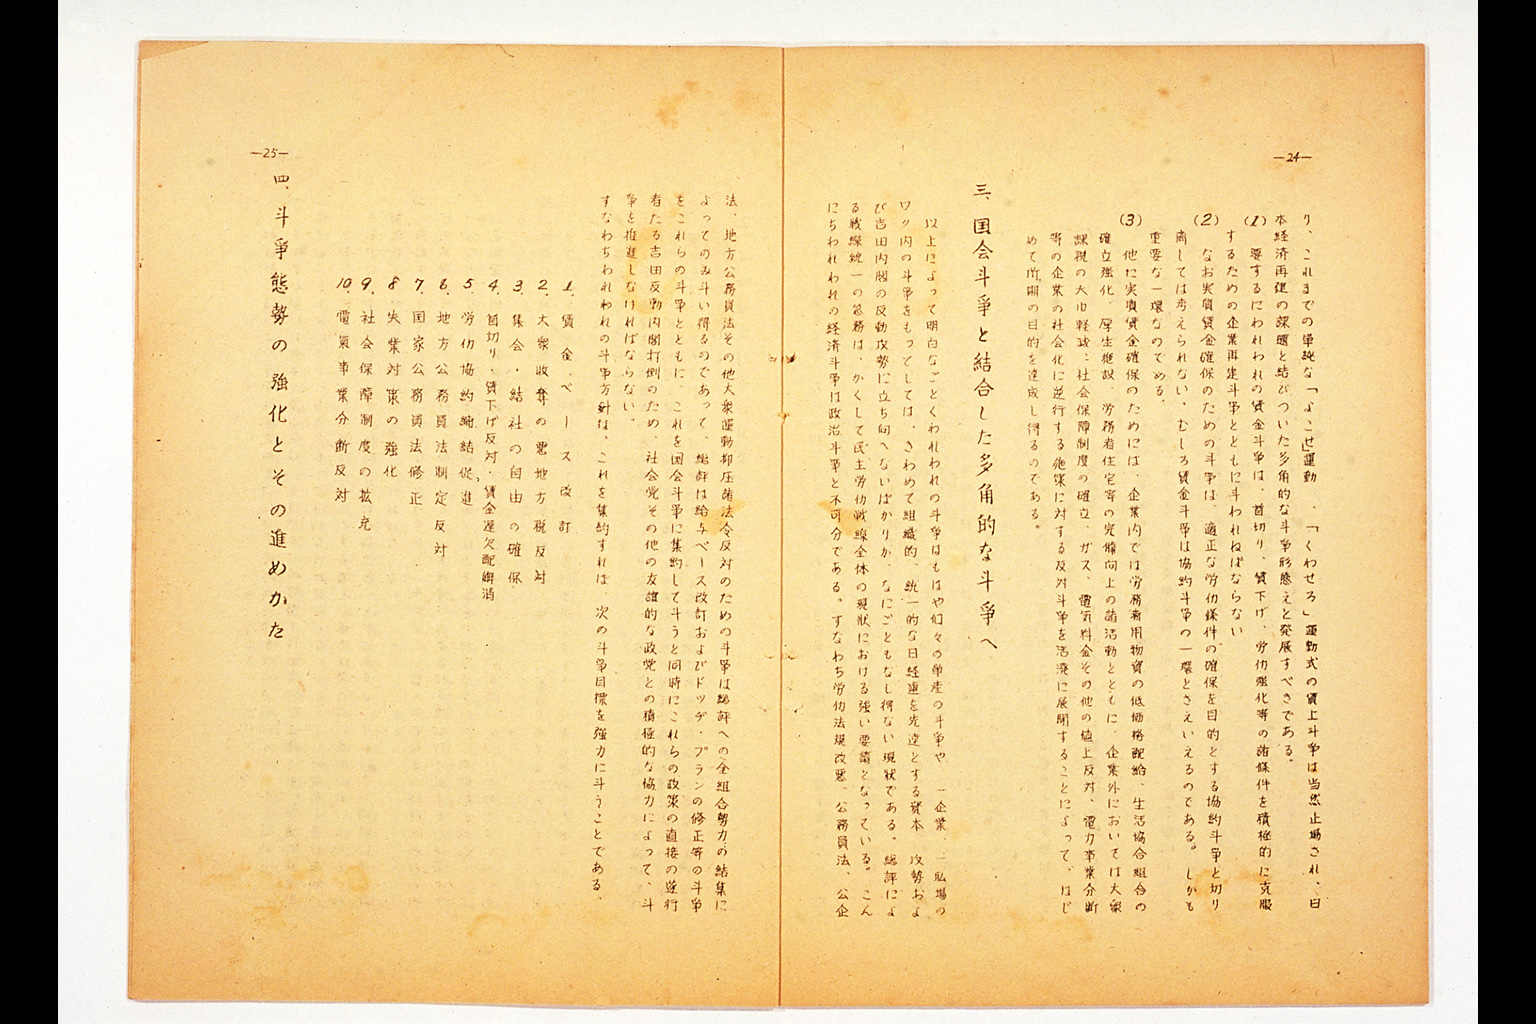 —24—
り、これまでの単純な「よこせ」運動、「くわせろ」運動式の賃上斗争は当然止揚され、日
本経済再建の課題と結びついた多角的な斗争形態えと発展すべきである。
(1) 要するにわれわれの賃金斗争は、首切り、賃下げ、労仂強化等の諸條件を積極的に克服
するための企業再建斗争とともに斗われねばならない
(2) なお実質賃金確保のための斗争は、適正な労仂條件の確保を目的とする協約斗争と切り
離しては考えられない、むしろ賃金斗争は協約斗争の一環とさえいえるのである。しかも
重要な一環なのである。
(3) 他に実質賃金確保のためには、企業内では労務者用物資の低価格配給、生活協合組合の
確立強化、厚生施設、労務者住宅等の完備向上の諸活動とともに、企業外においては大衆
課税の大巾軽減、社会保障制度の確立、ガス、電気料金その他の値上反対、電力事業分断
等の企業の社会化に逆行する施策に対する反対斗争を活溌に展開することによって、はじ
めて所期の目的を達成し得るのである。
三、国会斗争と結合した多角的な斗争へ
以上によって明白なごとくわれわれの斗争はもはや個々の単産の斗争や、一企業、一職場の
ワク内の斗争をもってしては、きわめて組織的、統一的な日経連を先達とする資本攻勢およ
び吉田内閣の反動攻勢に立ち向へないばかりか、なにごともなし得ない現状である。総評によ
る戦線統一の急務は、かくして民主労仂戦線全体の現状における強い要請となっている。こん
にちわれわれの経済斗争は政治斗争と不可分である。すなわち労仂法規改悪、公務員法、公企
—25—
法、地方公務員法その他大衆運動抑圧諸法令反対のための斗争は総評への全組合勢力の結集に
よってのみ斗い得るのであって、総評は給与ベース改訂およびドッヂ・プランの修正等の斗争
をこれらの斗争とともに、これを国会斗争に集約して斗うと同時にこれらの政策の直接の遂行
者たる吉田反動内閣打倒のため、社会党その他の友誼的な政党との積極的な協力によって、斗
争を推進しなければならない。
すなわちわれわれの斗争方針は、これを集約すれば 次の斗争目標を強力に斗うことである。
1. 賃金ベース改訂
2. 大衆收奪の悪地方税反対
3. 集会・結社の自由の確保
4. 首切り・賃下げ反対・賃金遅欠配解消
5. 労仂協約締結促進
6. 地方公務員法制定反対
7. 国家公務員法修正
8 失業対策の強化
9. 社会保障制度の拡充
10. 電氣事業分断反対
四、斗争態勢の強化とその進めかた